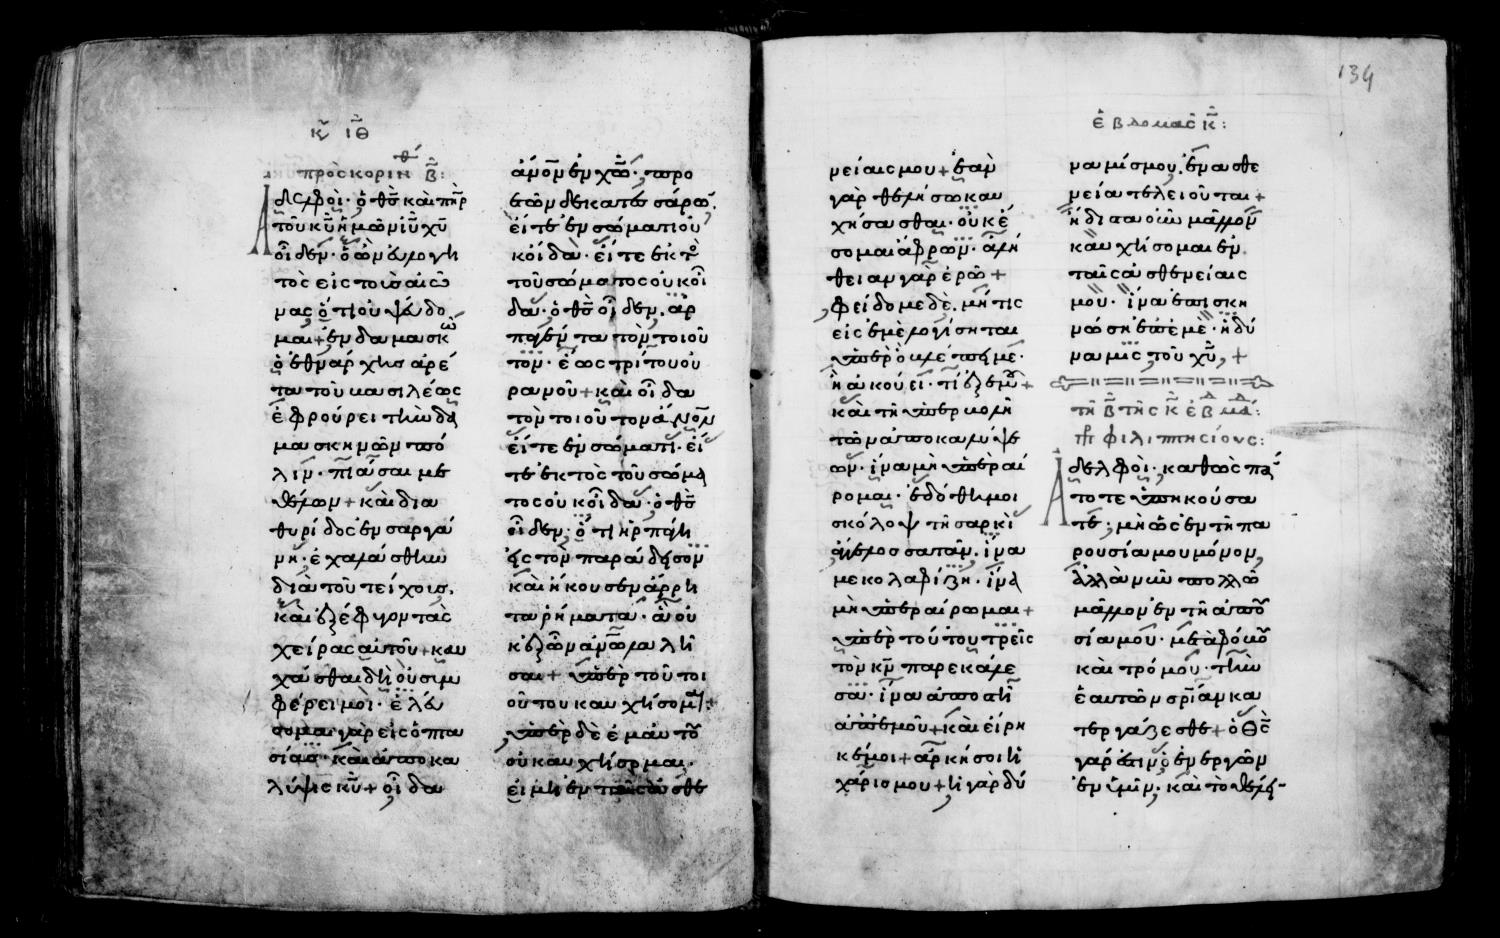 κυ ιθ
προς κοριν β:
Αδελφοὶ· ὁ θς καὶ πηρ
τοῦ κυ ἡμῶν ιυ χυ
οἶδεν· ὁ ὢν εὐλογη
τὸς εἰς τοὺς αἰῶ
νας ὅτι οὐ ψεύδο
μαι + ἐν δαμασκῶ
ὁ ἐθνάρχης ἀρέ
τα τοῦ βασιλέως
ἐφρούρει τὴν δα
μασκηνῶν πό
λιν· πιάσαι με
θέλων + καὶ δια
θυρίδος ἐν σαργά
νη· ἐχαλάσθην
διὰ τοῦ τείχους.
καὶ ἐξέφυγον τὰς
χεῖρας αὐτοῦ + καυ
χᾶσθαι δὴ οὐ συμ
φέρει μοι· ἐλεύ
σομαι γὰρ εἰς ὀπτα
σίας· καὶ ἀποκα
λύψις κυ + οἶδα
ἄνον ἐν χω· προ
ἐτῶν δεκατεσσάρων,
εἴτε ἐν σώματι οὐ
κ οἶδα· εἴτε ἐκτὸ
τοῦ σώματος οὐκ οἶ
δα· ὁ θς οἶδεν. ἁρ
παγέντα τὸν τοιοῦ
τον· ἕως τρίτου οὐ
ρανοῦ + καὶ οἶδα
τὸν τοιοῦτον ἄνον
εἴτε ἐν σώματι· εἴ
τε ἐκτὸς τοῦ σώμα
τος οὐκ οἶδα· ὁ θς
οἶδεν· ὅτι ἡρπάγη
εἰς τὸν παράδεισον
καὶ ἤκουσεν ἄρρη
τα ῥήματα· ἃ οὐ
κ ἐξὸν ἀνω λαλῆ
σαι + ὑπὲρ τοῦ τοι
ούτου καυχήσομαι +
ὑπὲρ δὲ ἐμαυτοῦ
οὐ καυχήσομαι·
εἰ μὴ ἐν ταῖς ἀσθε
134
ἑβδομας κ:
νείαις μου + ἐὰν
γὰρ θελήσω καυ
χήσασθαι· οὐκ ἔ
σομαι ἄφρων· ἀλή
θειαν γὰρ ἐρῶ +
φείδομε δὲ. μή τις
εἰς ἐμὲ λογίσηται
ὑπὲρ ὃ βλέπει με·
ἢ ἀκούει· τι ἐξ ἐμοῦ +
καὶ τῆ ὑπερβολῆ
τῶν ἀποκαλύψε
ων· ἵνα μὴ ὑπεραί
ρομαι· ἐδόθη μοι
σκόλοψ τῆ σαρκὶ
ἄγγελος σαταν. ἵνα
με κολαφίζη· ἵνα
μὴ ὑπεραίρωμαι +
ὑπὲρ τούτου τρεῖς
τὸν κν παρεκάλε
σα· ἵνα ἀποστῆ
ἀπ' ἐμοῦ + καὶ εἴρη
κέ μοι + ἀρκῆ σοι ἡ
χάρις μου + ἡ γὰρ δύ
ναμίς μου. ἐν ἀσθε
νεία τελειοῦται +
ἥδιστα οὖν μᾶλλον
καυχήσομαι ἐν
ταῖς ἀσθενείαις
μου· ἵνα ἐπισκη
νώση ἐπ' ἐμὲ· ἡ δύ
ναμις τοῦ χυ, +
τῆ β τῆς κ ἑβδμά:
πρ φιλιππησίους:
Αδελφοὶ· καθὼς πά
τοτε ὑπηκούσα
τε· μὴ ὡς ἐν τῆ πα
ρουσία μου μόνον,
ἀλλὰ νῦν πολλῶ
μᾶλλον ἐν τῆ ἀπου
σία μου· μετὰ φόβου
καὶ τρόμου· τὴν
ἑαυτῶν σριαν κα
τεργάζεσθε + ὁ θς
γάρ ἐστιν ὁ ἐνεργῶν
ἐν ὑμῖν, καὶ τὸ θέλει-